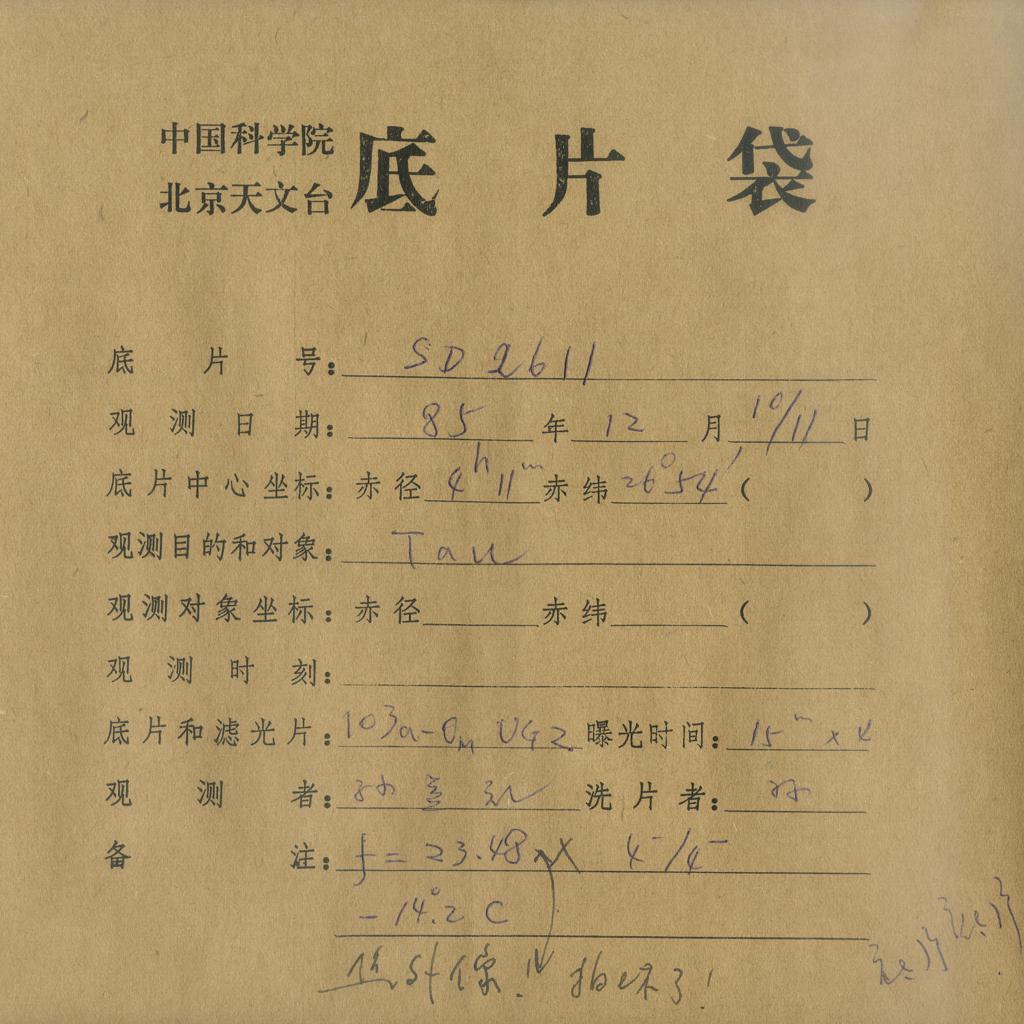 中国科学院
北京天文台
底片袋
底片号: SD 2611
观测日期: 85年12月10/11日
底片中心坐标: 赤径 4h 11m 赤纬 26°54′ ( )
观测目的和对象: Tau
观测对象坐标: 赤径 赤纬 ( )
观测时刻:
底片和滤光片: 103a-O UG2 曝光时间: 15m x 4
观测者: 孙 洗片者: 孙
备注: f = 23.48
-14.°2 C
焦外像! 拍坏了!